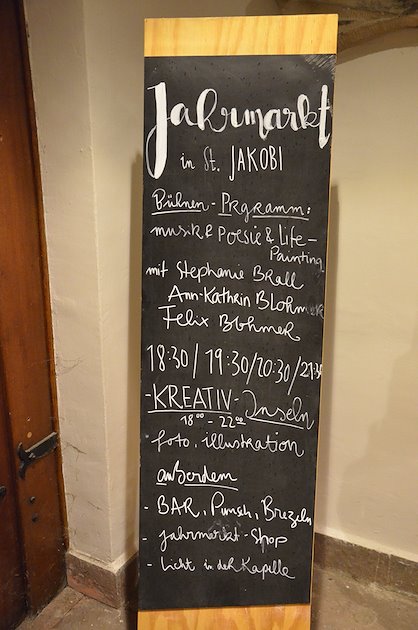 Jahrmarkt
in St. JAKOBI
Bühnen - Prgramm:
musik & Poesie & Life -
Painting
mit Stephanie Brall
Ann-Kathrin Blohmer
Felix Bohmer
18:30 / 19:30 / 20:30 / 21:30
- KREATIV - Inseln
18⁰⁰ - 22⁰⁰
foto, illustration
außerdem
- BAR, Punsh, Brezeln
- Jahrmarkt - Shop
- Licht in der Kapelle